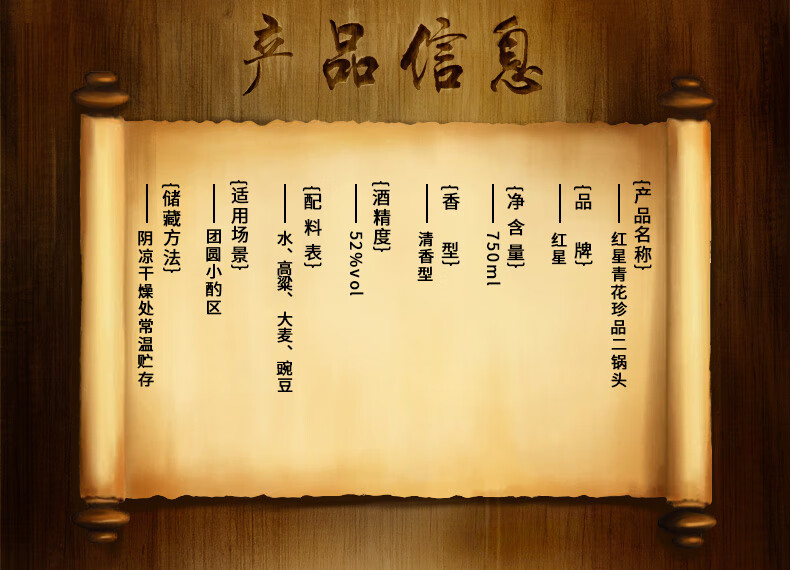 产品信息
{产品名称}
红星青花珍品二锅头
{品牌}
红星
{净含量}
750ml
{香型}
清香型
{酒精度}
52%vol
{配料表}
水、高粱、大麦、豌豆
{适用场景}
团圆小酌区
{储藏方法}
阴凉干燥处常温贮存